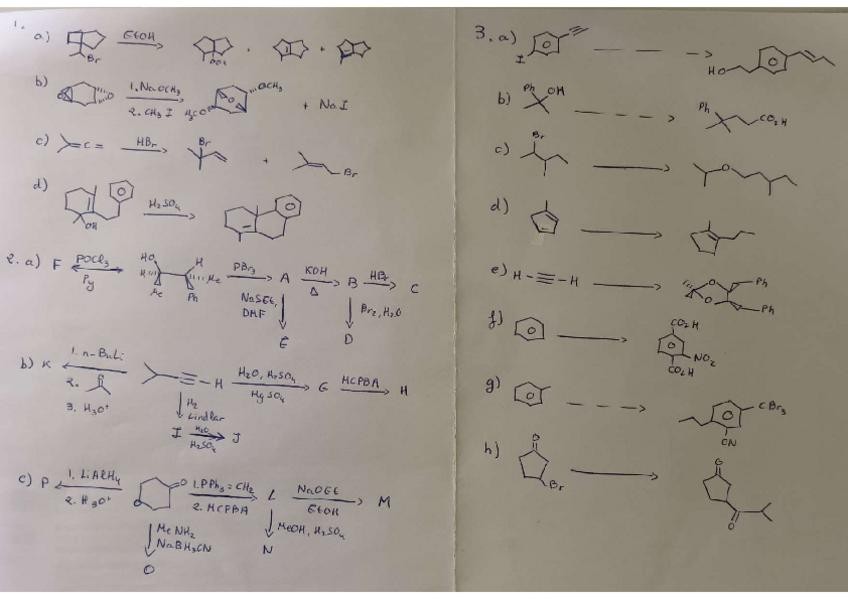 1.
a) Br EtOH OEt + +
b) O O 1. NaOCH₃ 2. CH₃I H₃CO O OCH₃ + NaI
c) =C= HBr Br + Br
d) OH H₂SO₄
2. a) F POCl₃ Py HO H H Me Me Ph PBr₃ A KOH Δ B HBr C
NaSEt, DMF Br₂, H₂O
E D
b) K 1. n-BuLi 2. O 3. H₃O⁺ ≡-H H₂O, H₂SO₄ HgSO₄ G MCPBA H
H₂ Lindlar
I H₂O H₂SO₄ J
c) P 1. LiAlH₄ 2. H₃O⁺ O 1. PPh₃=CH₂ 2. MCPBA L NaOEt EtOH M
MeNH₂ NaBH₃CN MeOH, H₂SO₄
O N
3. a) I HO
b) Ph OH Ph CO₂H
c) Br O
d)
e) H-≡-H O O Ph Ph
f) CO₂H NO₂ CO₂H
g) CBr₃ CN
h) O Br O O